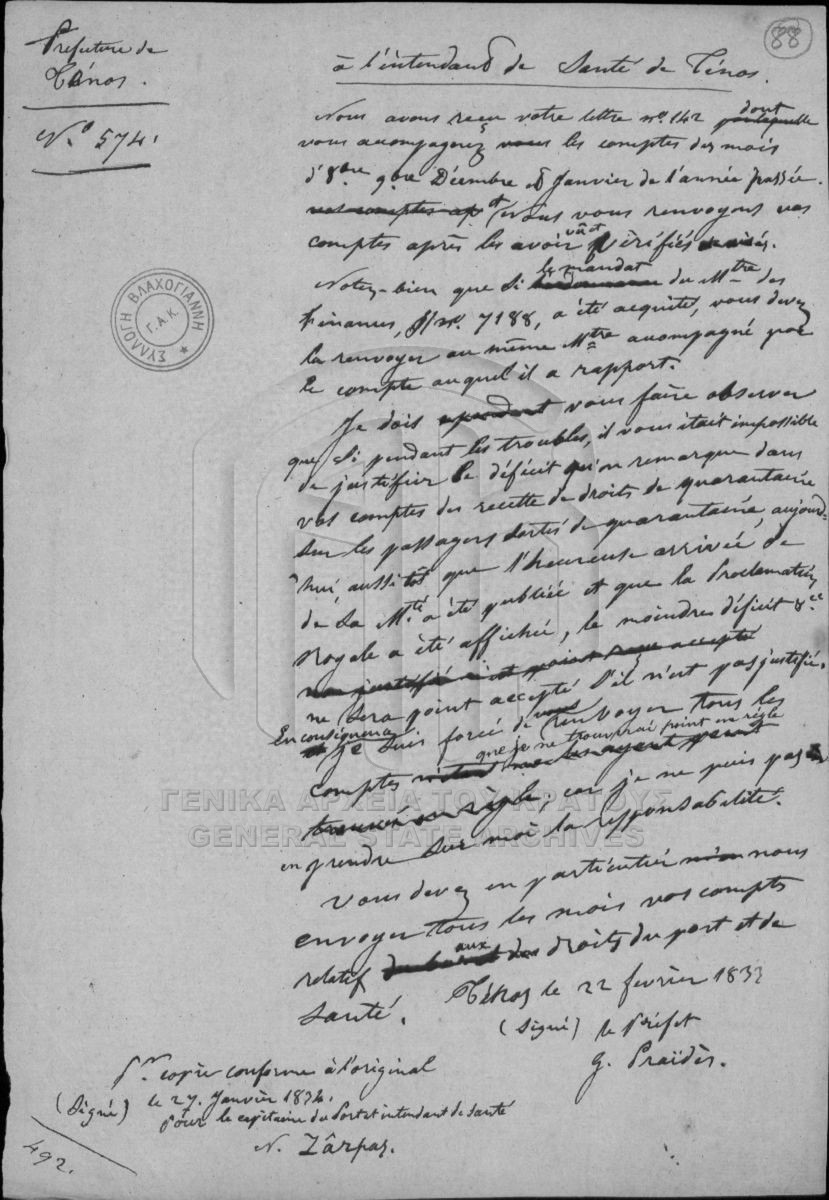 88
Préfecture de
Ténos.
N.° 574.
à l'intendant de Santé de Ténos.
Nous avons reçu votre lettre n.° 142 dont
vous accompagnez les comptes des mois
d'8bre 9bre Décembre et Janvier de l'année passée.
et Nous vous renvoyons vos
comptes après les avoir vu et vérifiés
Notez-bien que si le mandat du Mtre des
Finances, n.° 7188, a été acquité, vous devez
la renvoyer au même Mtre acompagné par
le compte auquel il a rapport.
Je dois vous faire observer
que si pendant les troubles, il vous était impossible
de justifier le déficit qu'on remarque dans
vos comptes des recette de droits de quarantaine
sur les passagers sortis de quarantaine, aujourd-
'hui, aussitôt que l'heureuse arrivée de
de Sa Mté a été publiée et que la Proclamation
Royale a été affichée, le moindre déficit
non justifié n'est point accepté
ne sera point accepté s'il n'est pas justifié.
En conséquence je suis forcé de vous renvoyer tous les
comptes que je ne trouverai point en règle
car je ne puis pas
en prendre sur moi la responsabilité.
Vous devez en particulier nous
envoyer tous les mois vos compts
relatif aux droits du port et de
Santé. Ténos le 22 fevrier 1833
(Signé) le Préfet
G. Praïdès.
Pr copie conforme à l'original
le 27. Janvier 1834.
(Signé) pour le capitaine du Port et intendant de santé
N. Zârpas.
492.
ΣΥΛΛΟΓΗ ΒΛΑΧΟΓΙΑΝΝΗ
Γ.Α.Κ.
ΓΕΝΙΚΑ ΑΡΧΕΙΑ ΤΟΥ ΚΡΑΤΟΥΣ
GENERAL STATE ARCHIVES